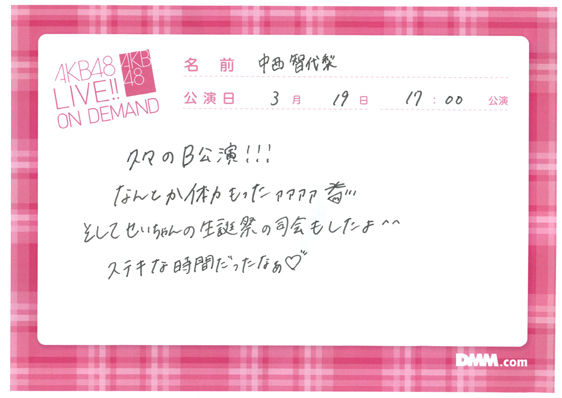 AKB48
LIVE!!
ON DEMAND
AKB
48
名前 中西智代梨
公演日 3月 19日 17:00 公演
久々のB公演!!!
なんとか体力もったァァァァ
そしてせいちゃんの生誕祭の司会もしたよ^^
ステキな時間だったなぁ♡
DMM.com